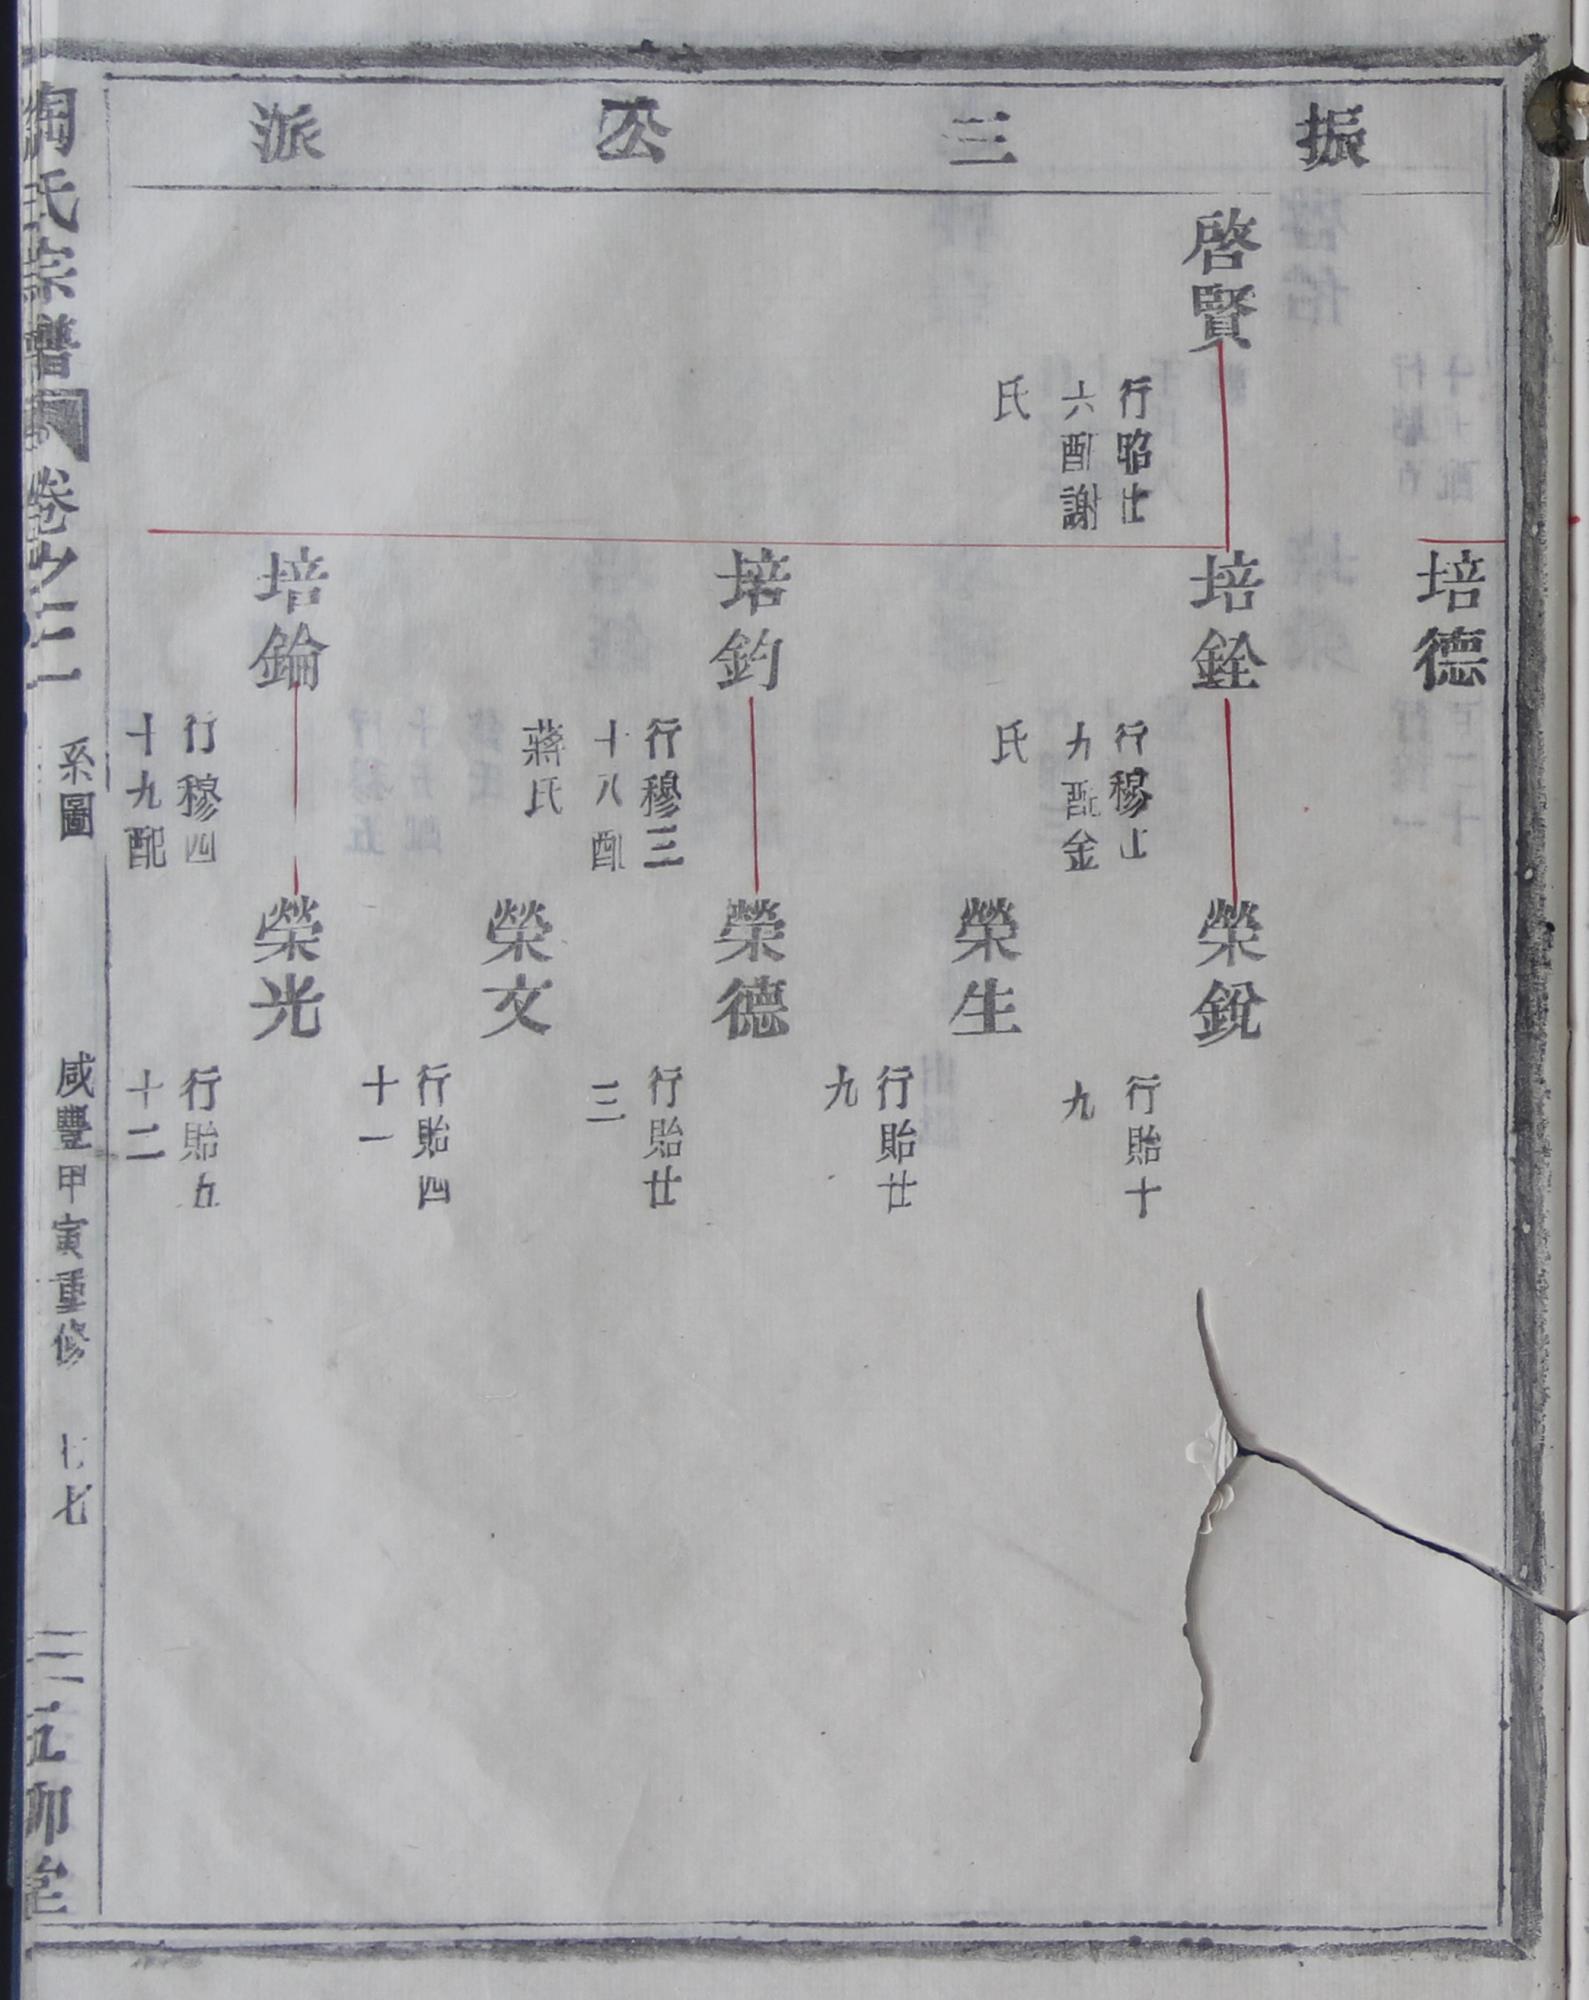 振三公派
培德
啓賢
行昭廿
六配謝
氏
培銓
行穆
九配金
氏
榮銳
行貽十
九
榮生
行貽廿
九
培鈞
行穆三
十八配
蔣氏
榮德
行貽廿
三
榮文
行貽四
十一
培錀
行穆四
十九配
榮光
行貽五
十二
陶氏宗譜
卷之
系圖
咸豐甲寅重修
七七
五柳堂